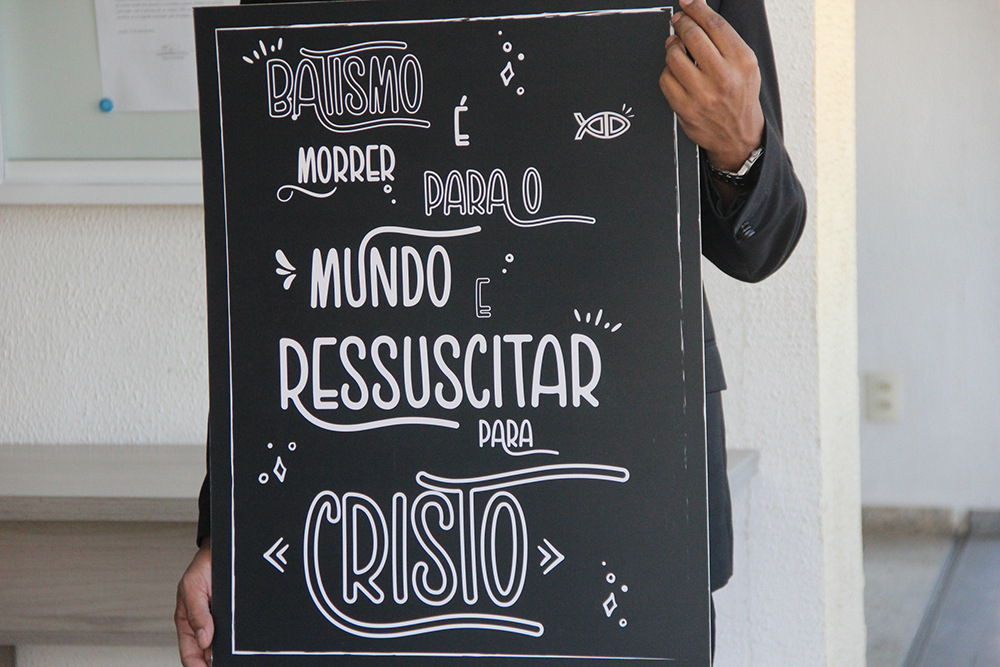 BATISMO
É
MORRER
PARA O
MUNDO E
RESSUSCITAR
PARA
CRISTO